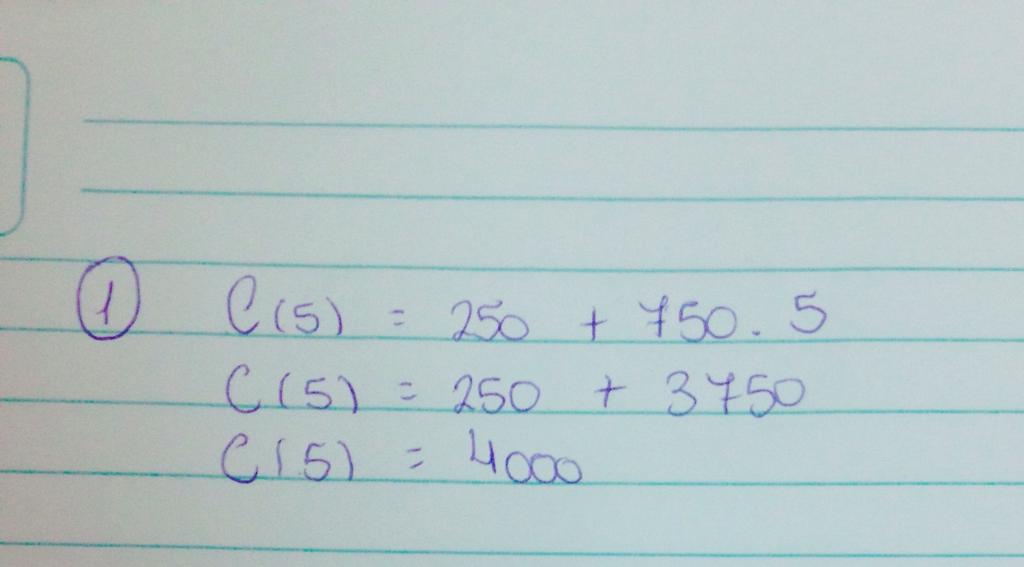 ① C(5) = 250 + 750 . 5
C(5) = 250 + 3750
C(5) = 4000